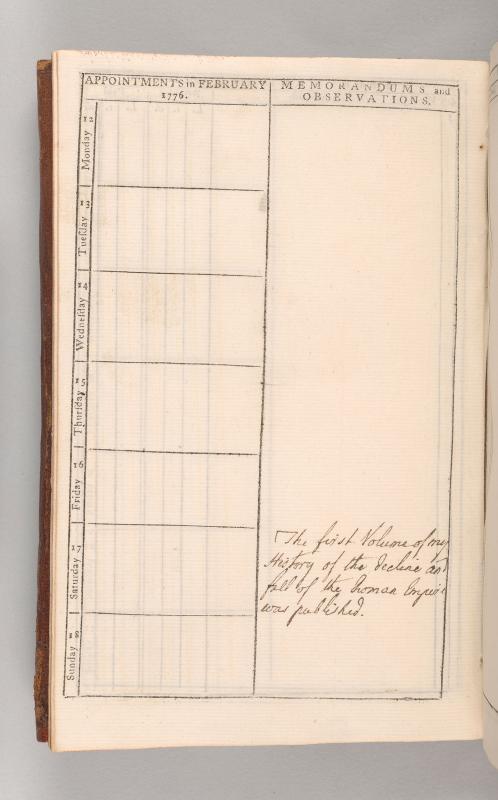 APPOINTMENTS in FEBRUARY
1776.
MEMORANDUMS and
OBSERVATIONS.
Monday 12
Tueſday 13
Wedneſday 14
Thurſday 15
Friday 16
Saturday 17
Sunday 18
The first Volume of my
History of the decline and
fall of the Roman Empire
was published.